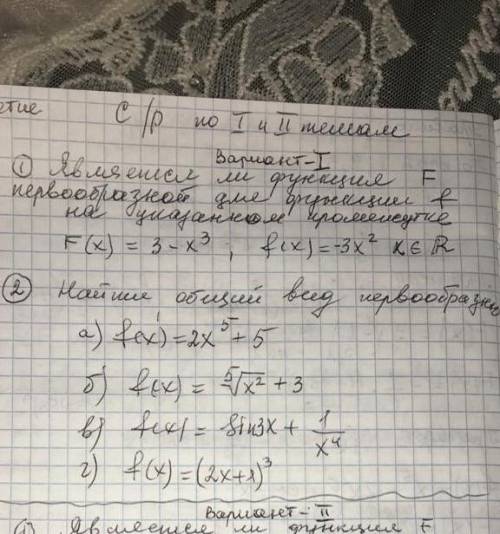 С/р по I и II темам
Вариант-I
① Является ли функция F
первообразной для функции f
на указанном промежутке
F(x) = 3 - x³ ; f(x) = -3x² x ∈ ℝ
② Найти общий вид
а) f(x) = 2x⁵ + 5
б) f(x) = ⁵√x² + 3
в) f(x) = sin3x + 1/x⁴
г) f(x) = (2x+1)³
Вариант-II
① Является ли функция F